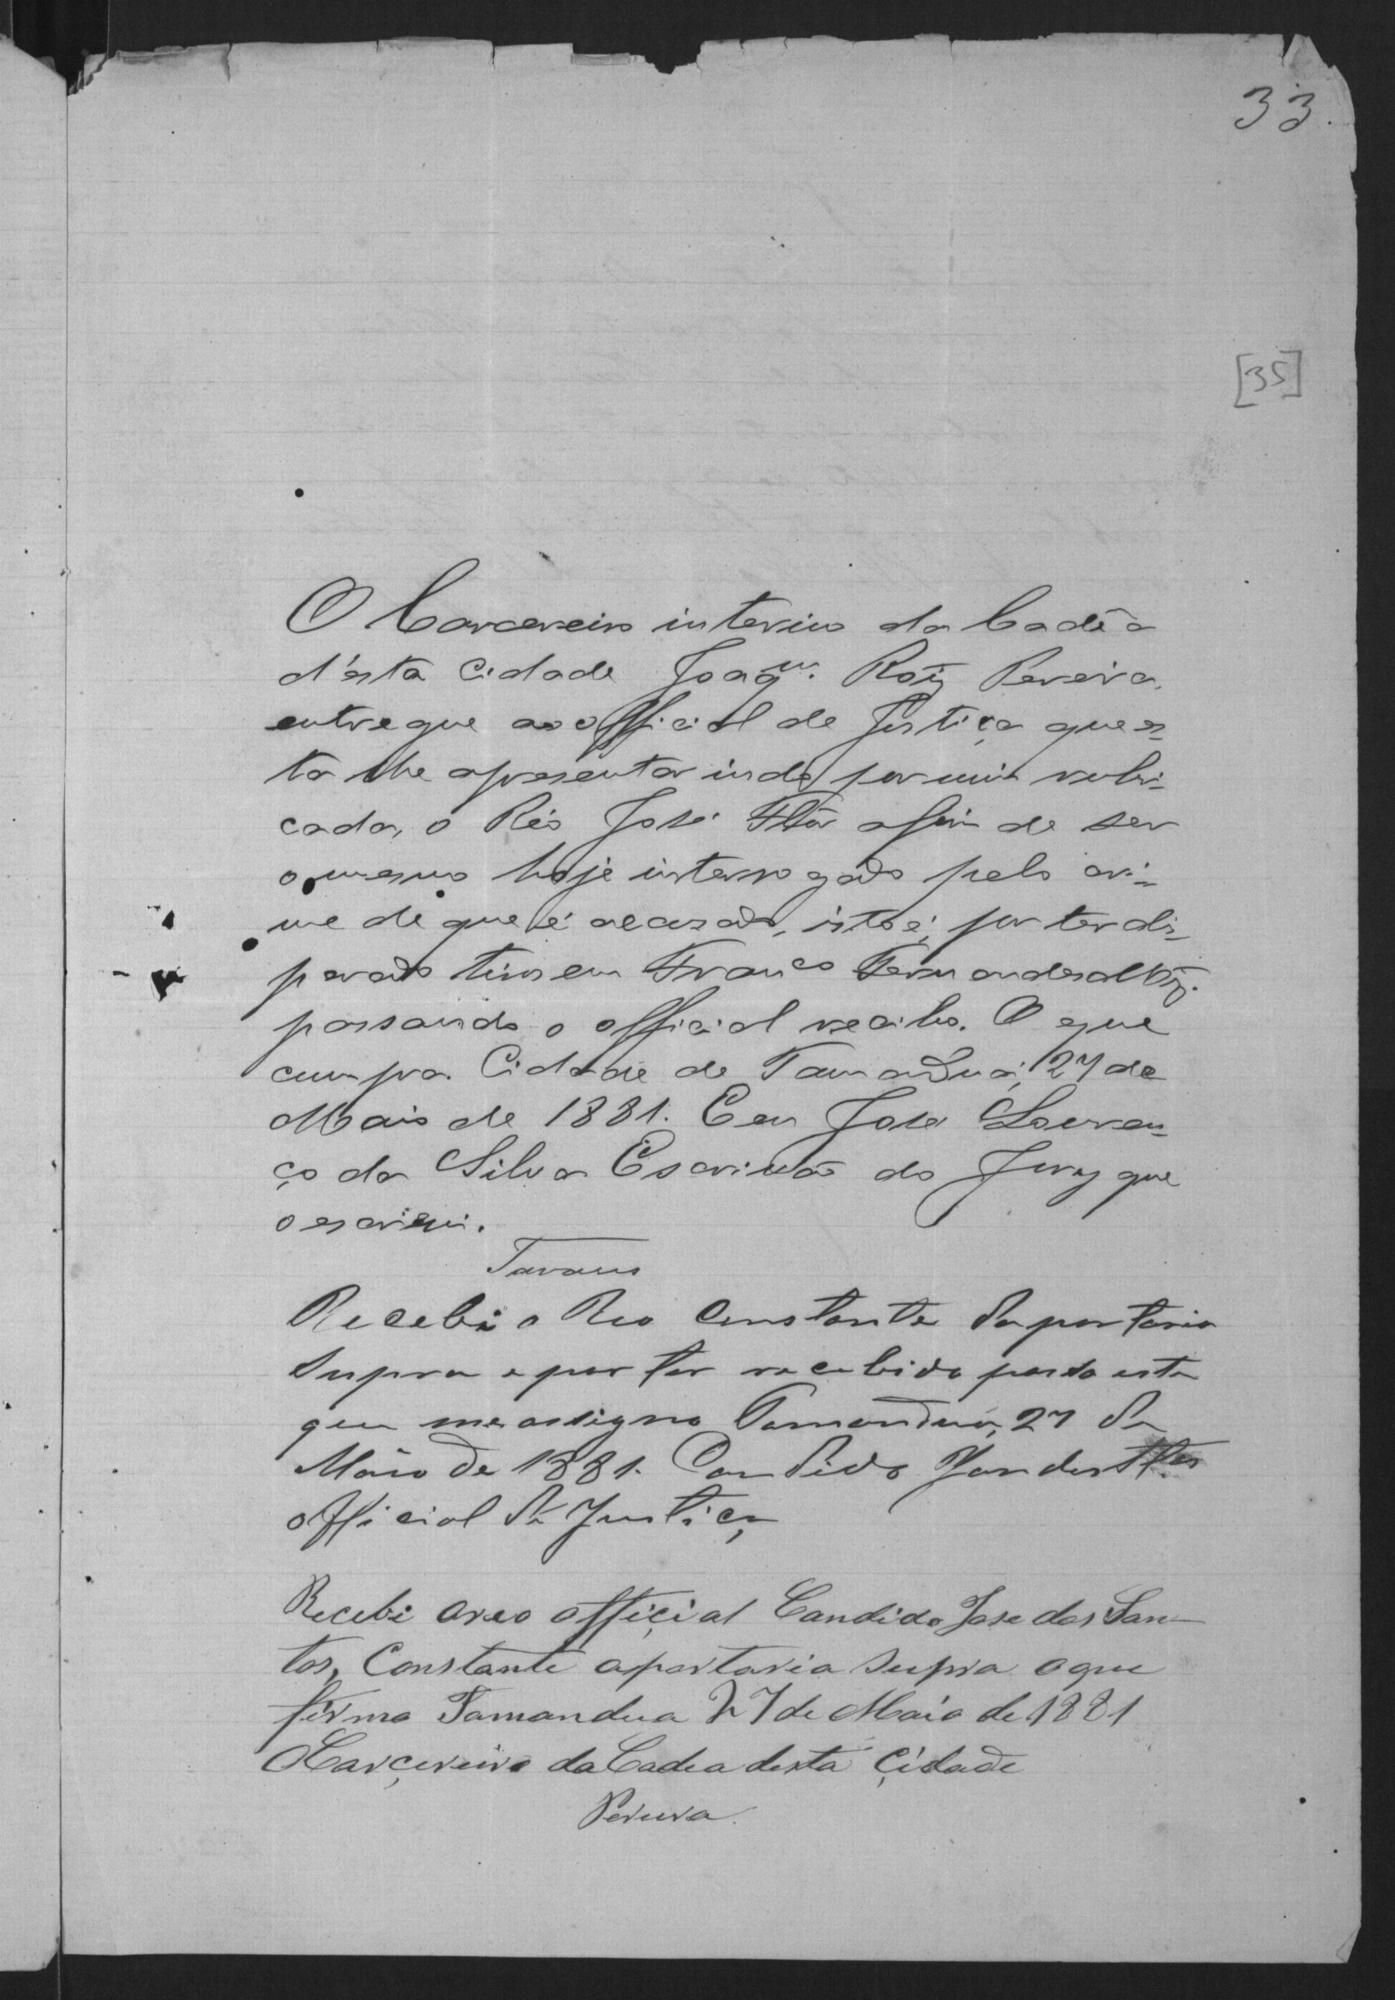 33.
[35]
O Carcereiro interino da Cadêa
d'esta Cidade Joaqm. Roiz Pereira,
entregue ao official de Justiça que es-
ta lhe apresentar indo por mim rubri-
cada, o Réo José Flôr afim de ser
o mesmo hoje interrogado pelo cri-
me de que é accusado, isto é, por ter dis-
parado tiros em Franco Fernandes
passando o official recibo. O que
cumpra. Cidade de Tamanduá, 27 de
Maio de 1881. Eu José Louren-
ço da Silva Escrivão do Jury que
o escrivi.
Tavares
Recebi o Reo Constante da portaria
supra e por ter recebido passo este
que me assigno Tamanduá, 27 de
Maio de 1881. Candido José dos
official de Justiça,
Recebi oreo official Candido Jose dos San-
tos, Constante aportaria supra oque
firmo Tamandua 27 de Maio de 1881
OCarçereiro da Cadea desta Çidade
Pereira.